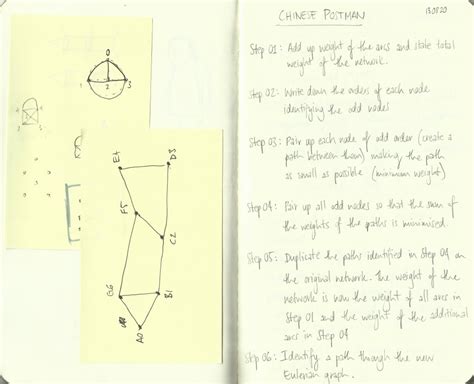 CHINESE POSTMAN
130820
Step 01: Add up weight of the arcs and state total
weight of the network.
Step 02: Write down the orders of each node
identifying the odd nodes
Step 03: Pair up each node of odd order (create a
path between them) making the path
as small as possible (minimum weight)
Step 04: Pair up all odd nodes so that the sum of
the weights of the paths is minimised.
Step 05: Duplicate the paths identified in Step 04 on
the original network. The weight of the
network is now the weight of all arcs in
Step 01 and the weight of the additional
arcs in Step 04
Step 06: Identify a path through the new
Eulerian graph.
0
1
2
3
E4
D3
F5
C2
G6
B1
A0